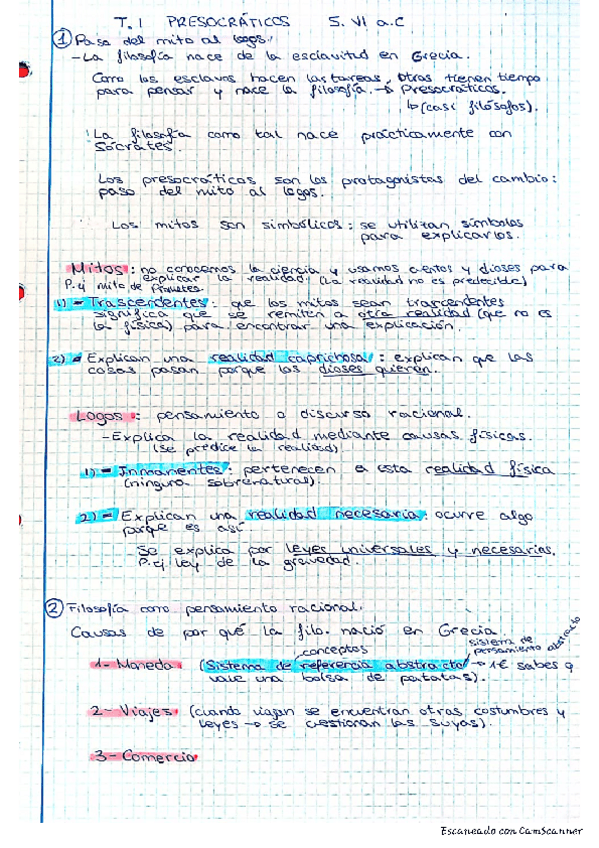 T.1 PRESOCRÁTICOS S. VI a.C
① Paso del mito al logos.
- La filosofía nace de la esclavitud en Grecia.
Como los esclavos hacen las tareas, otros tienen tiempo
para pensar y nace la filosofía. → Presocráticos.
↳ (casi filósofos).
La filosofía como tal nace prácticamente con
Sócrates.
Los presocráticos son los protagonistas del cambio:
paso del mito al logos.
Los mitos son simbólicos: se utilizan símbolos
para explicarlos.
Mitos: no conocemos la ciencia y usamos cuentos y dioses para
explicar la realidad. (La realidad no es predecible)
P.ej mito de
1) - Trascendentes: que los mitos sean trascendentes
significa que se remiten a otra realidad (que no es
la física) para encontrar una explicación.
2) - Explican una realidad caprichosa: explican que las
cosas pasan porque los dioses quieren.
Logos: pensamiento o discurso racional.
- Explica la realidad mediante causas físicas.
(se predice la realidad).
1) - Inmanentes: pertenecen a esta realidad física
(ninguna sobrenatural).
2) - Explican una realidad necesaria: ocurre algo
porque es así.
Se explica por leyes universales y necesarias.
P.ej ley de la gravedad.
② Filosofía como pensamiento racional.
Causas de por qué la filo. nació en Grecia.
conceptos
sistema de
pensamiento abstracto
1- Moneda (Sistema de referencia abstracto → 1€ sabes q
vale una bolsa de patatas).
2- Viajes (cuando viajan se encuentran otras costumbres y
leyes → se cuestionan las suyas).
3- Comercio
Escaneado con CamScanner